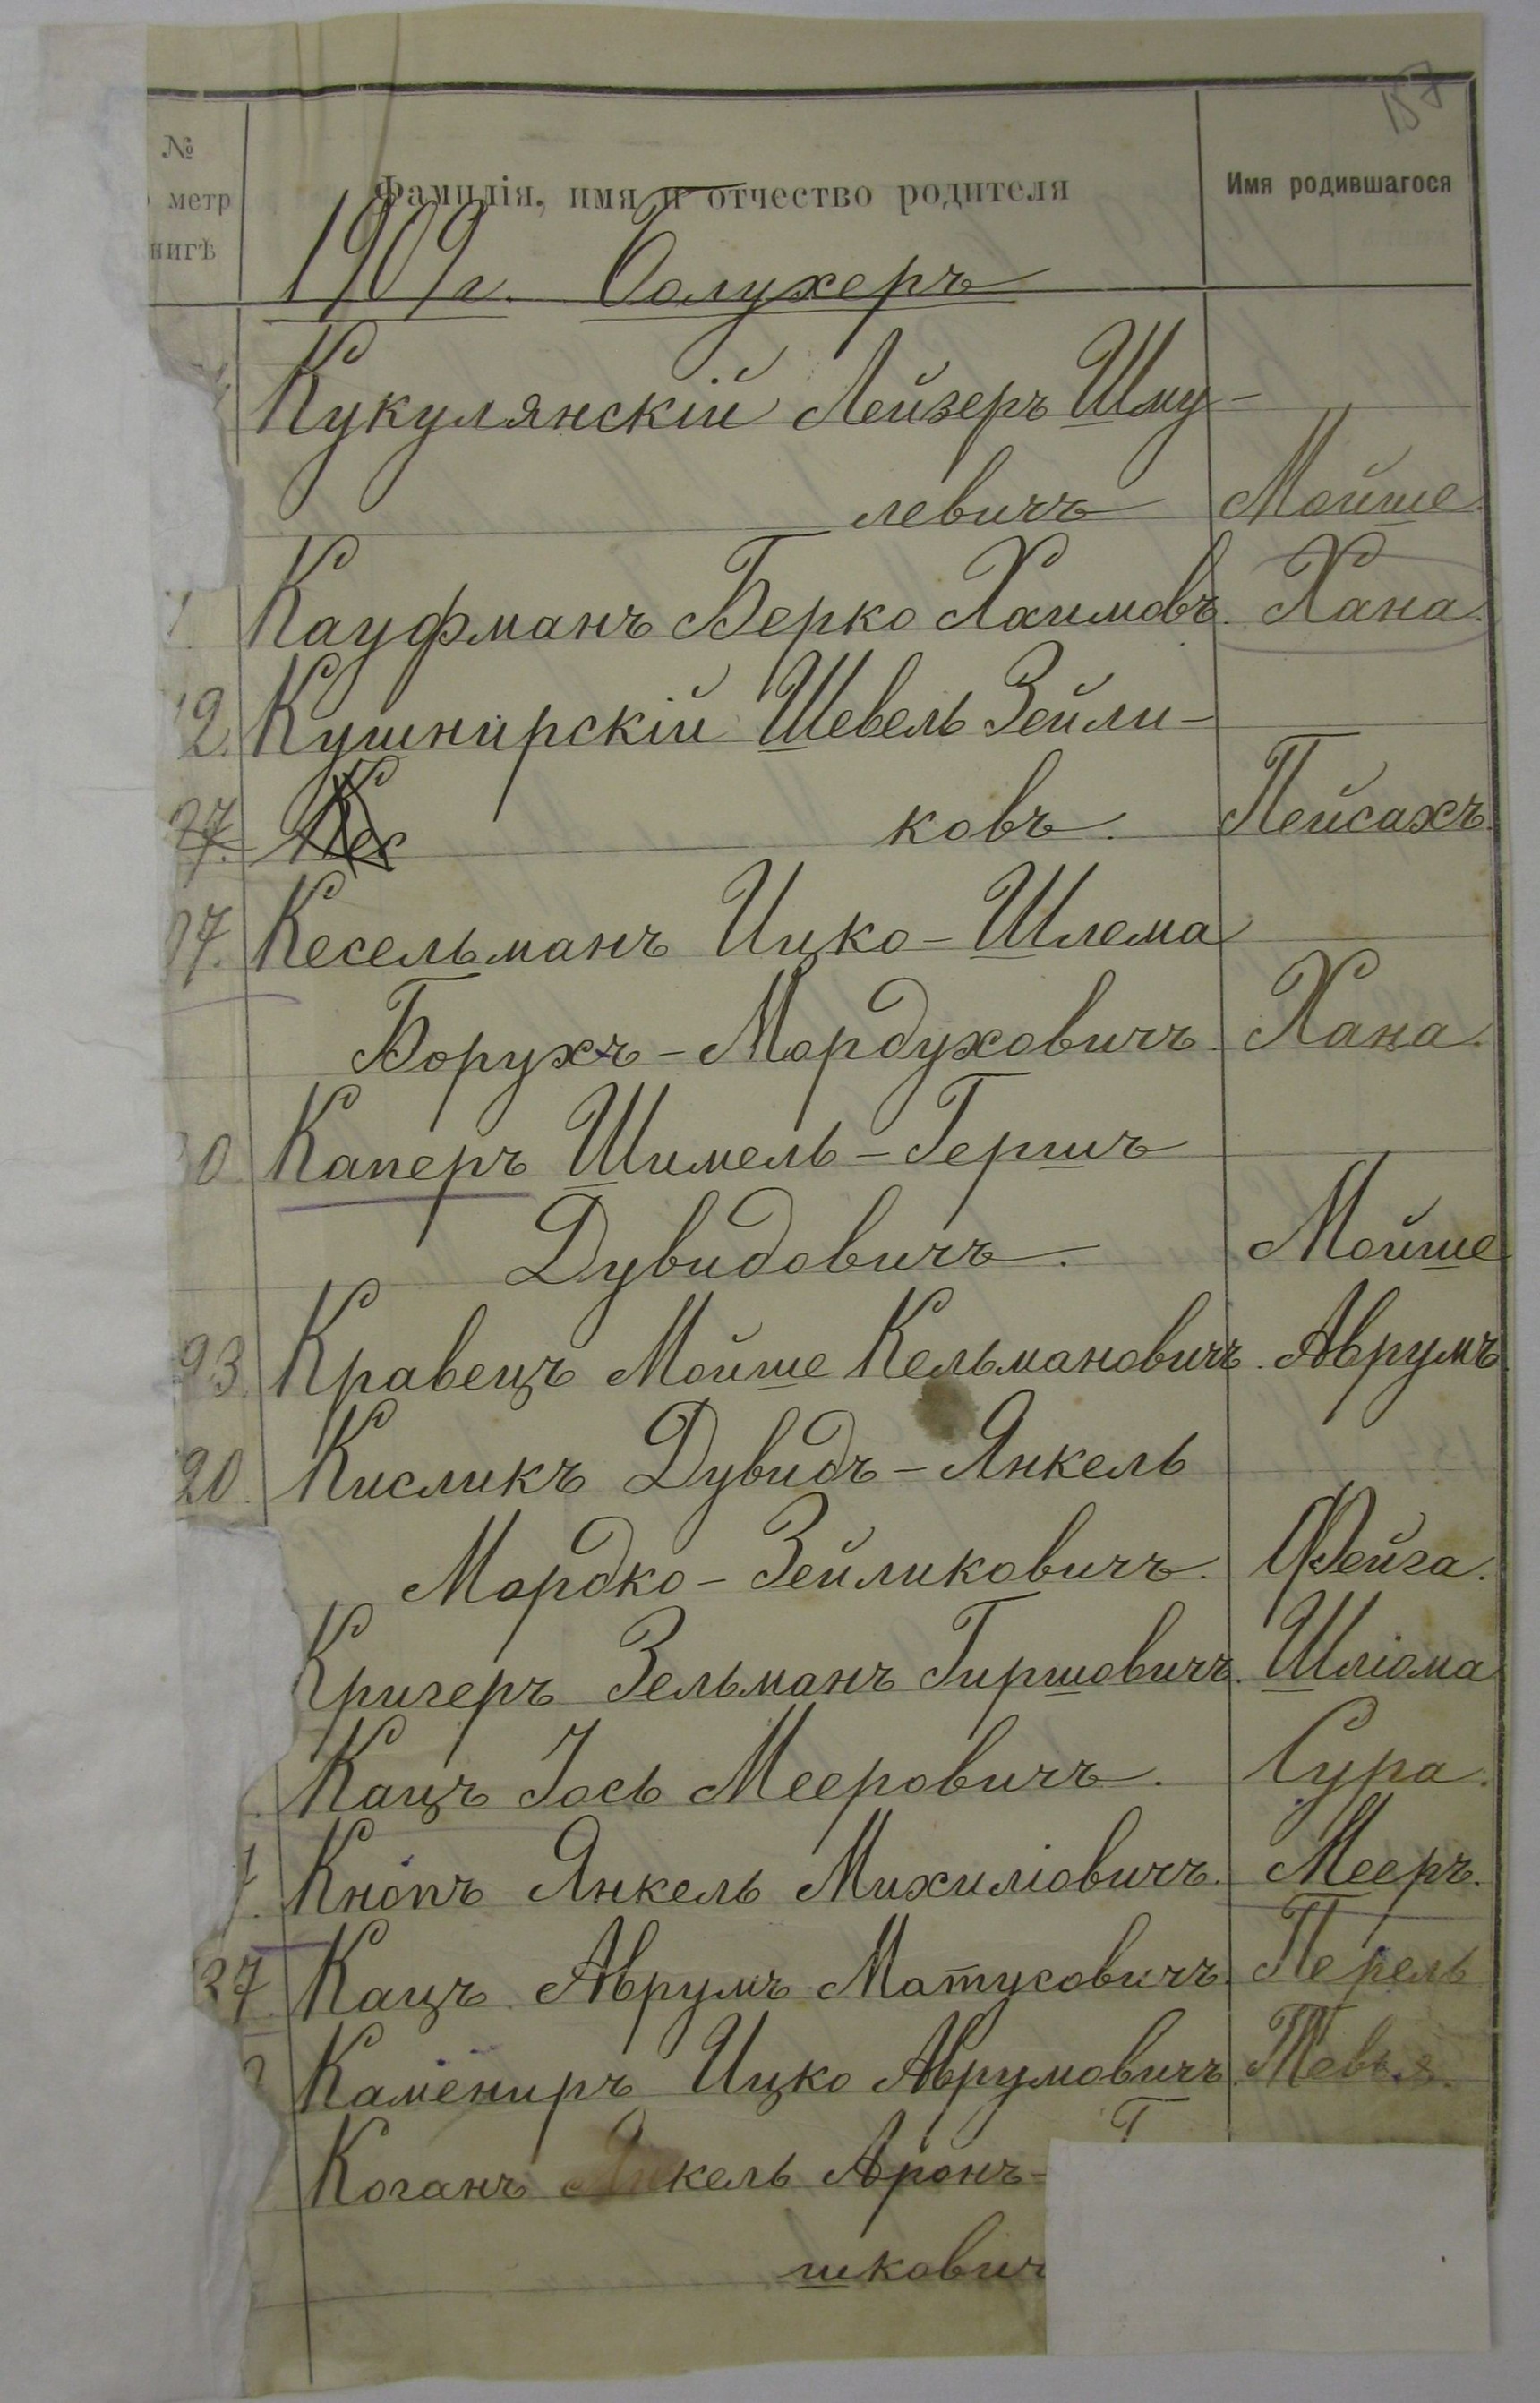 187
№
метр
нигѣ
Фамилія, имя и отчество родителя
Имя родившагося
1909 г. Болухеръ
Кукулянскій Лейзеръ Шму-
левичъ Мойше.
Кауфманъ Берко Хаимовъ. Хана.
2. Кушнирскій Шевель Зейли-
27. Кес ковъ. Пейсахъ.
7. Кесельманъ Ицко-Шлема
Борухъ-Мордуховичъ. Хана.
0 Каперъ Шимель-Гершъ
Дувидовичъ. Мойше
93. Кравецъ Мойше Кельмановичъ. Аврумъ
20. Кисликъ Дувидъ-Янкель
Мордко-Зейликовичъ. Фейга.
Кригеръ Зельманъ Гиршовичъ. Шліома
Кацъ Іось Мееровичъ. Сура.
Кнопъ Янкель Михиліовичъ. Мееръ.
37 Кацъ Аврумъ Матусовичъ. Перель
Камениръ Ицко Аврумовичъ. Тевья.
Коганъ Янкель Аронъ-
шкович